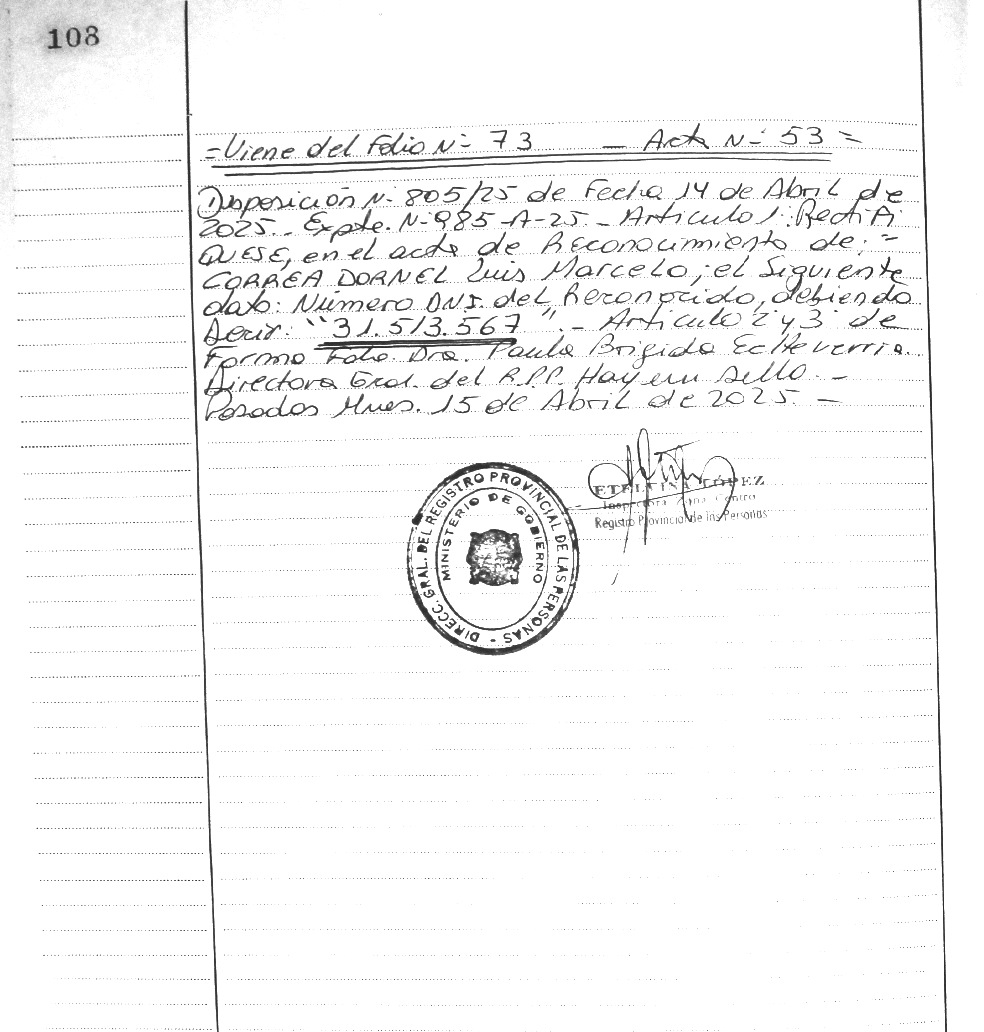 108
=Viene del Folio N- 73 - Acta N- 53 =
Disposición N- 805/25 de Fecha 14 de Abril de
2025.- Expte. N-985-A-25 - Articulo 1: Rectifi
QUESE, en el acta de Reconocimiento de: =
CORREA DORNEL Luis Marcelo; el Siguiente
dato: Número DNI. del Reconocido, debiendo
decir: "31.513.567".- Articulo 2 y 3 de
Forma Fdo. Dra. Paula Brigida Echeverria.
Directora Gral. del R.P.P. Hay un sello.-
Posadas Mnes. 15 de Abril de 2025.-
ETELVINA LÓPEZ
Inspectora Zona Centro
Registro Provincial de las Personas
DIRECC. GRAL. DEL REGISTRO PROVINCIAL DE LAS PERSONAS -
MINISTERIO DE GOBIERNO